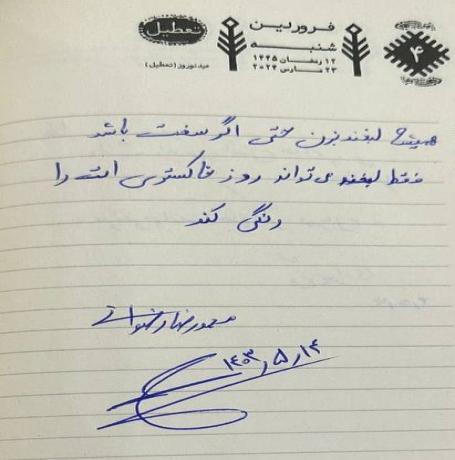 ۴
فروردین
شنبه
۱۲ رمضان ۱۴۴۵
۲۳ مارس ۲۰۲۴
تعطیل
عید نوروز (تعطیل)
همیشه لبخند بزن حتی اگر سخت باشد
فقط لبخند می‌تواند روز خاکستری ات را
رنگی کند
محمدرضا
۱۴۰۳/۵/۱۴